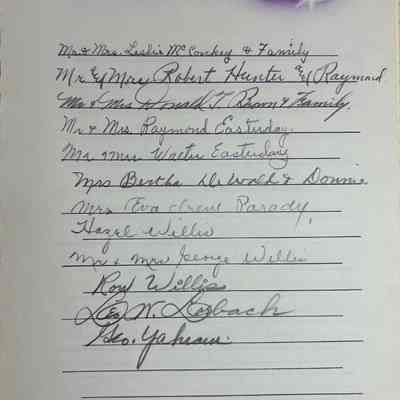 Mr. & Mrs. Leslie McConkey & Family
Mr. & Mrs. Robert Hunter & Raymond
Mr. & Mrs. Donald T. & Family.
Mr. & Mrs. Raymond Easterday.
Mr. & Mrs. Walter Easterday
Mrs Bertha DeWald & Donnie
Mrs Eva Irene Parady,
Hazel Willis
Mr. & Mrs George Willis
Roy Willis
Leo W. Lorbach
Geo.